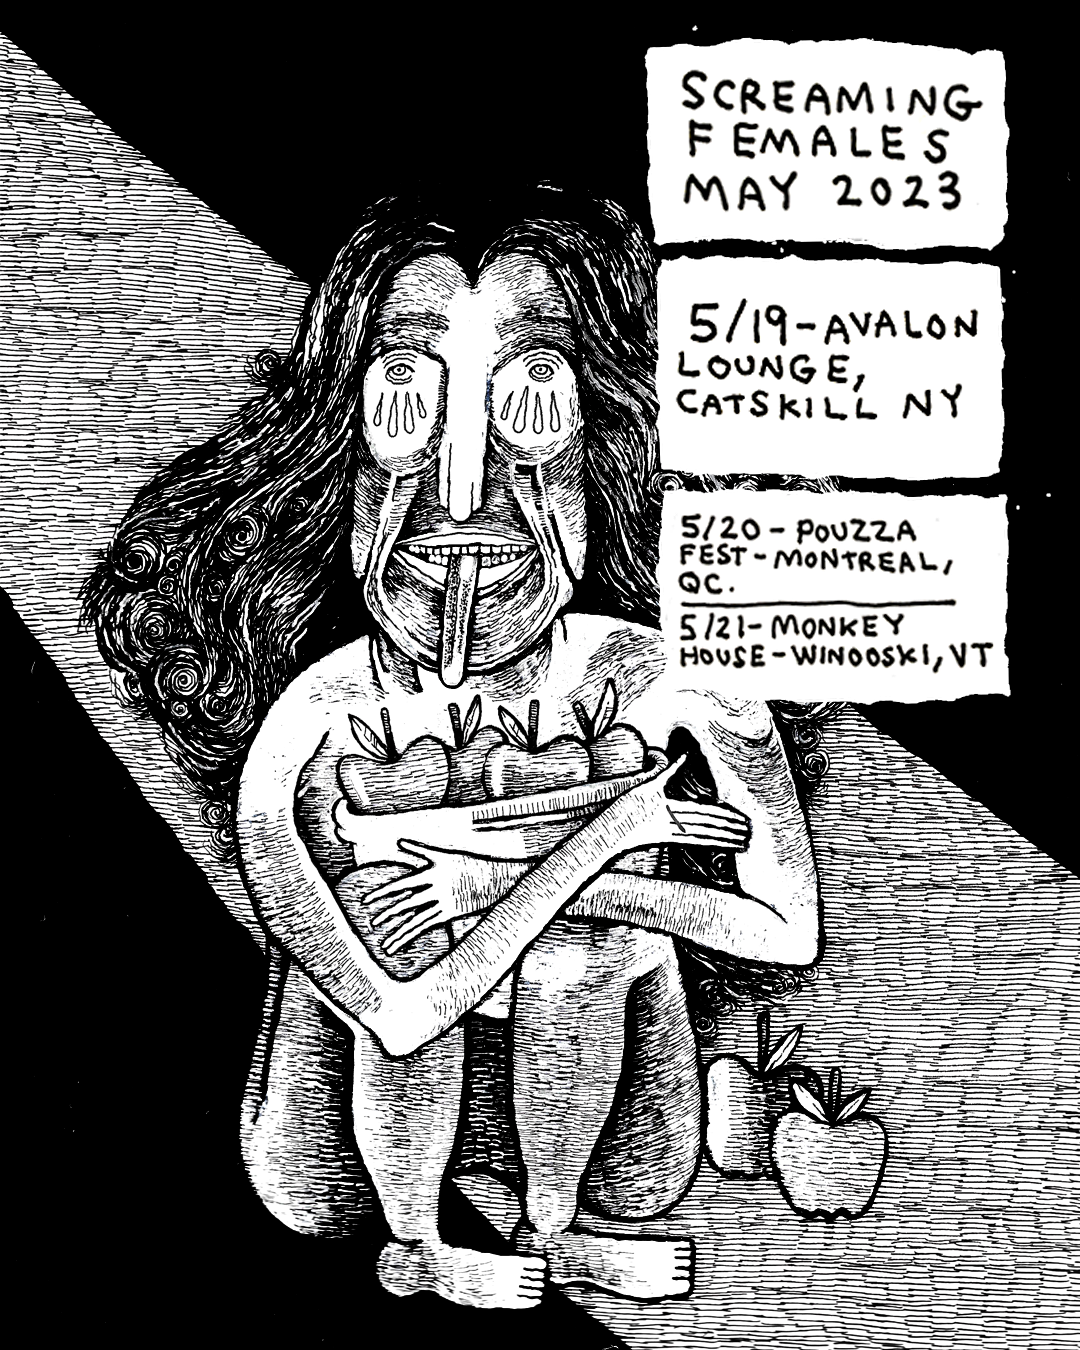 SCREAMING
FEMALES
MAY 2023
5/19-AVALON
LOUNGE,
CATSKILL NY
5/20-POUZZA
FEST-MONTREAL,
QC.
5/21-MONKEY
HOUSE-WINOOSKI, VT